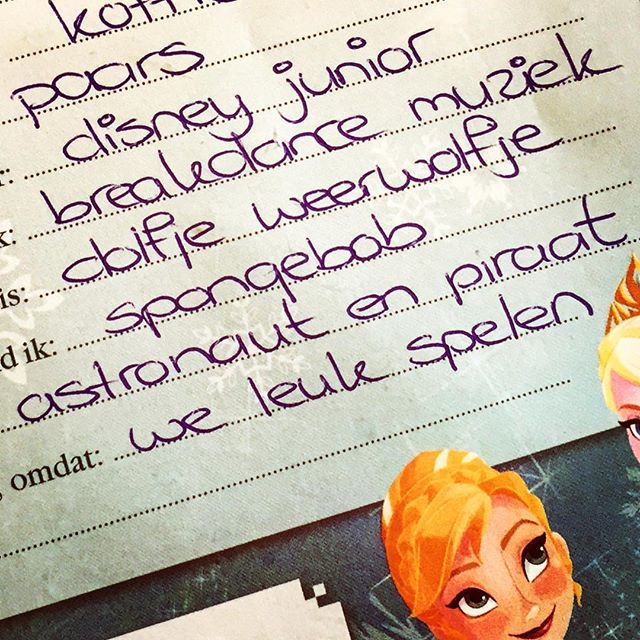 paars
disney junior
breakdance muziek
dolfje weerwolfje
is: spongebob
d ik: astronaut en piraat
, omdat: we leuk spelen